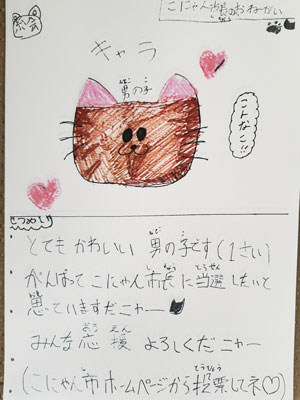 こにゃん市長のおねがい
キャラ
男の子
こんなこ!!
せつめい
とてもかわいい 男の子です(1さい)
がんばって こにゃん市長に当選したいと
思っていますだニャー
みんな 応援 よろしくだニャー
(こにゃん市ホームページから投票してネ♡)